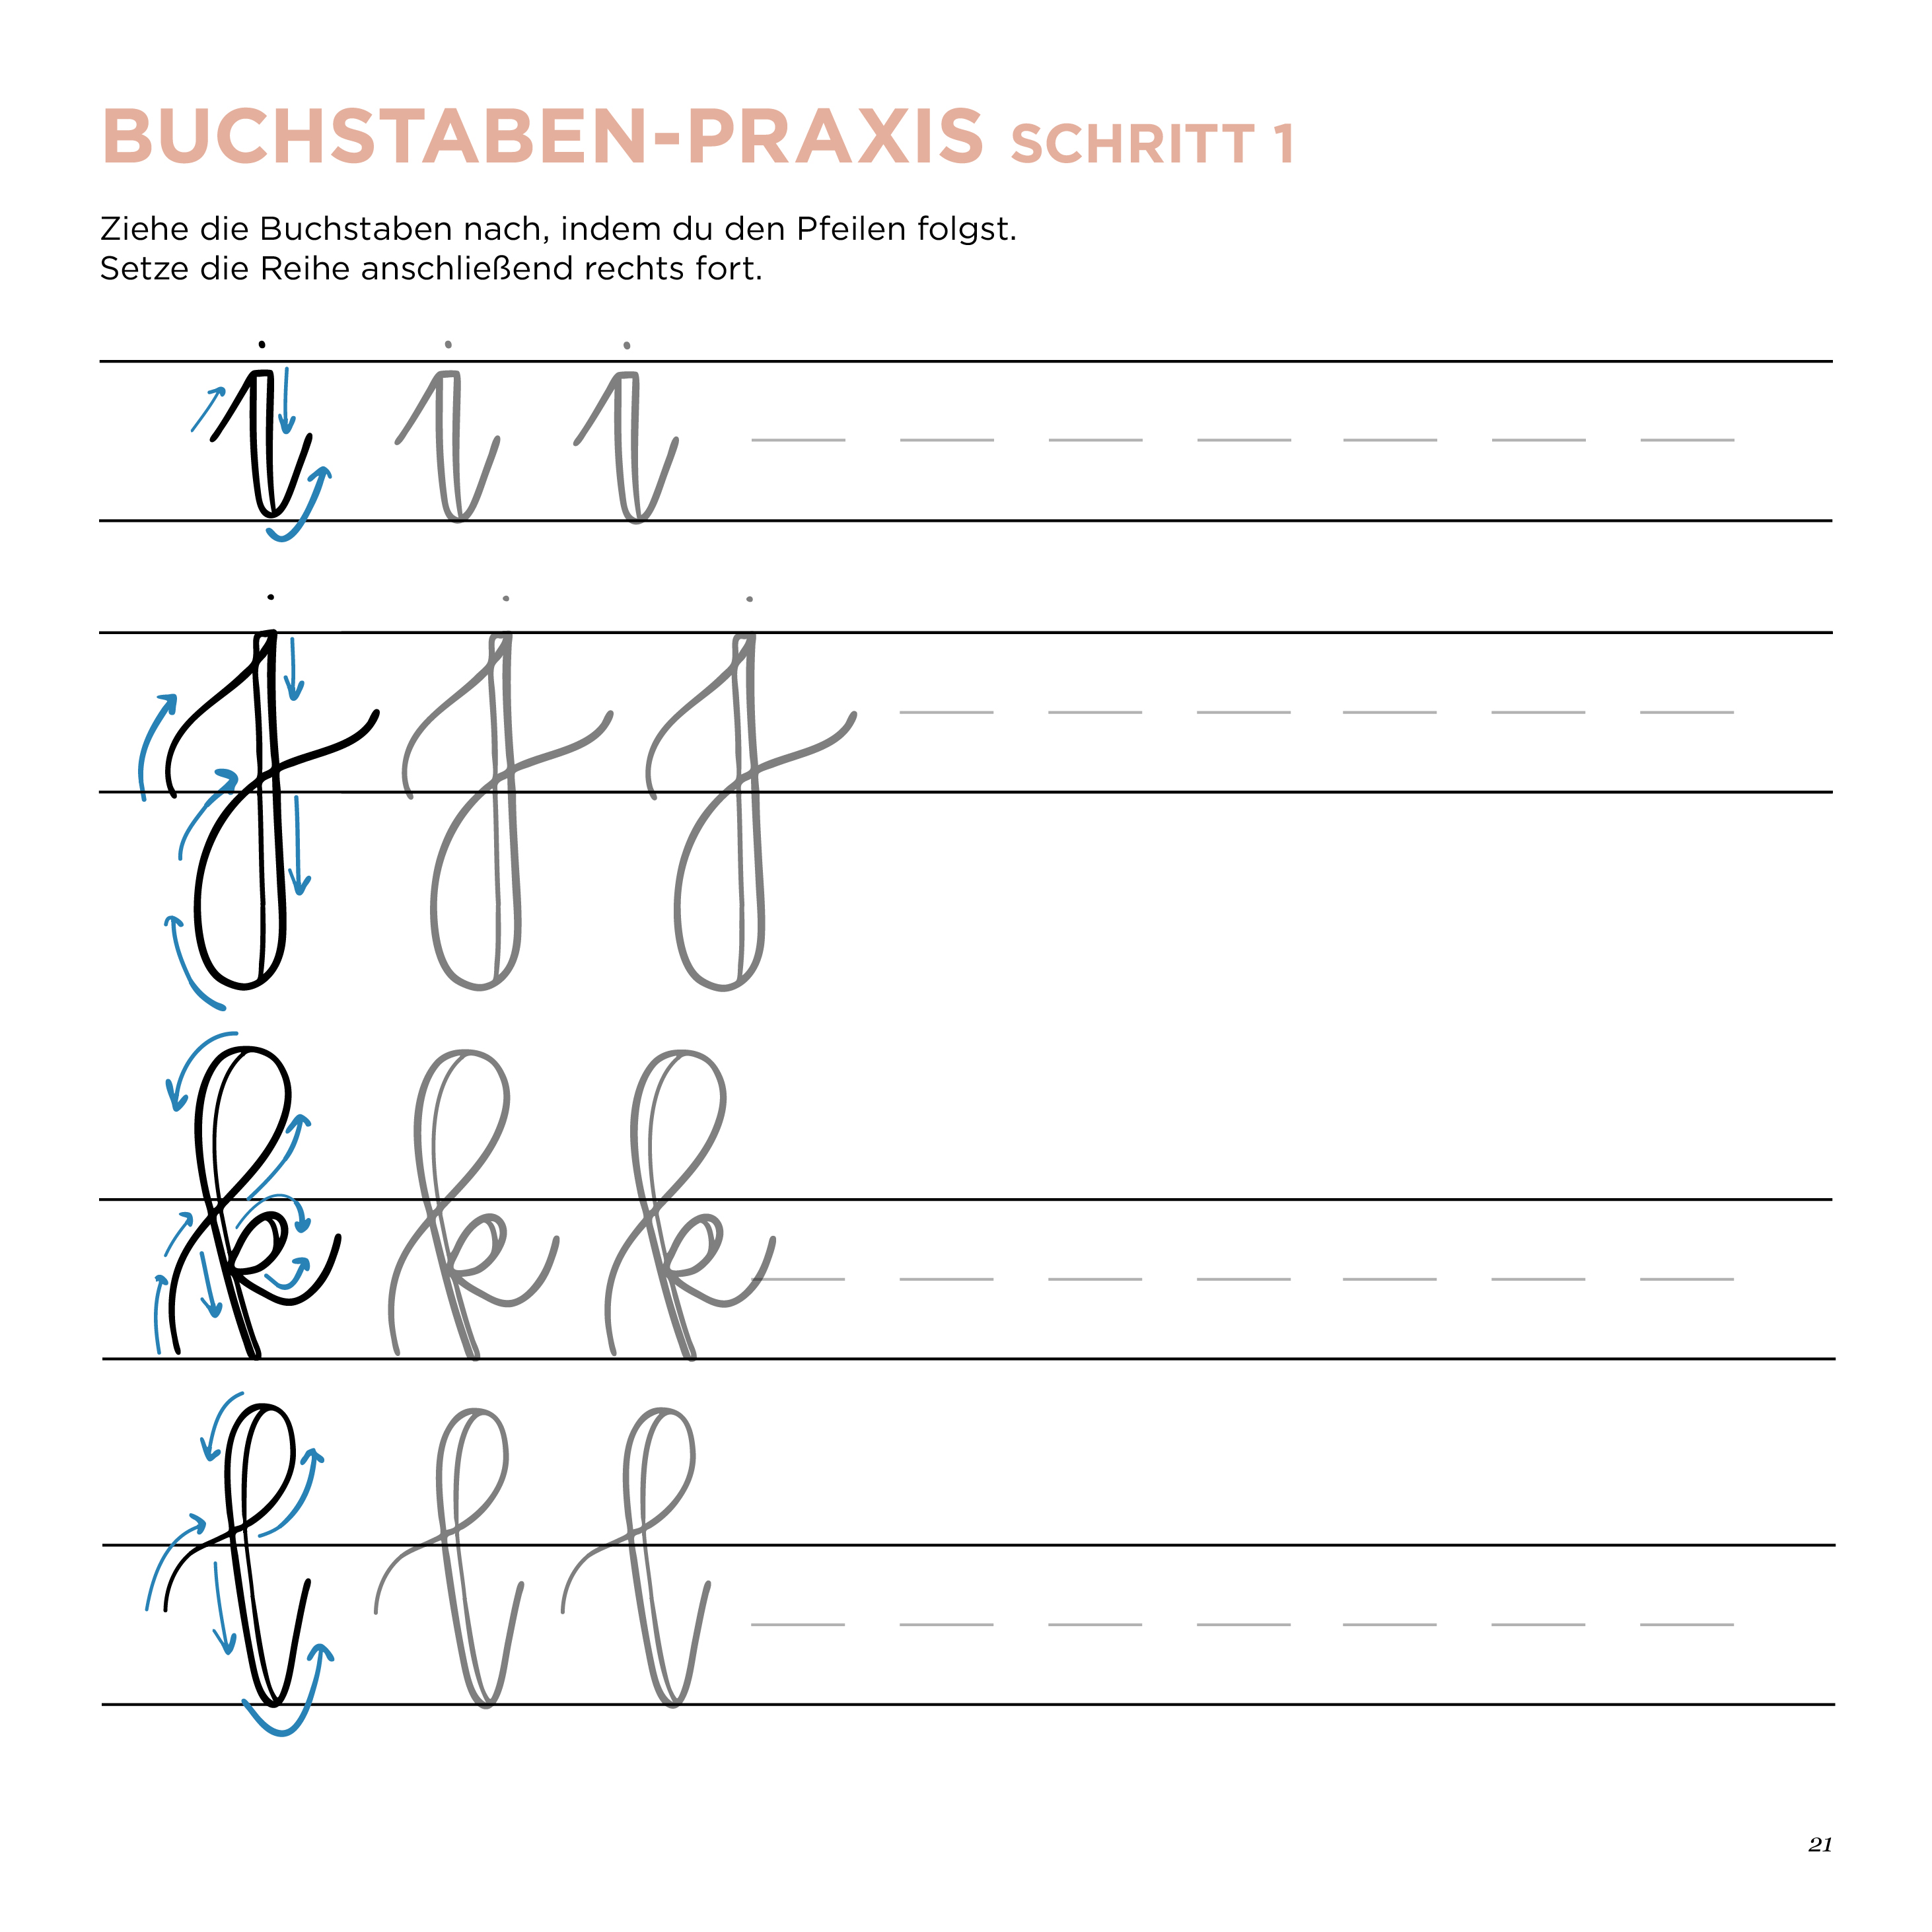 BUCHSTABEN-PRAXIS SCHRITT 1
Ziehe die Buchstaben nach, indem du den Pfeilen folgst.
Setze die Reihe anschließend rechts fort.
i i i
j j j
k k k
l l l
21